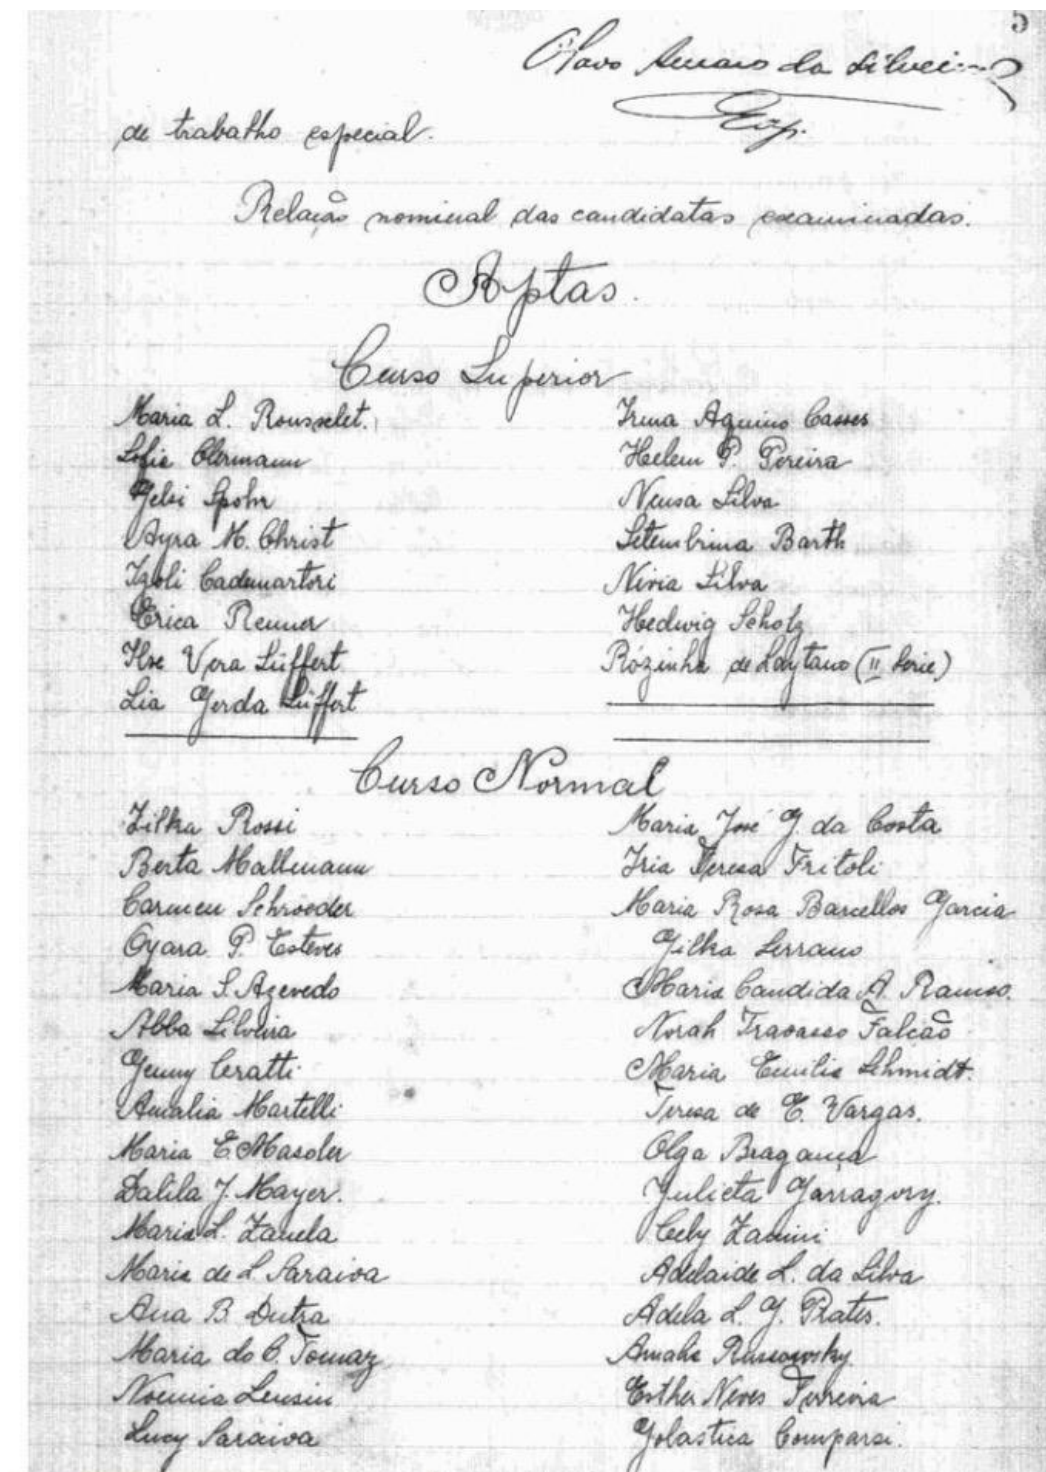 5
Olavo Amaro da Silveira
Esp.
de trabalho especial.
Relação nominal das candidatas examinadas.
Aptas.
Curso Superior
Maria L. Rousselet.
Sofia Olermann
Gelsi Spohr
Ayra M. Christ
Izoli Cademartori
Erica Renner
Ilse Vera Lüffert
Lia Gerda Lüffert
Irma Aquino Casses
Helem P. Pereira
Neusa Silva
Setembrina Barth
Nivia Silva
Hedwig Scholz
Rózinha de Laytano (II Serie)
Curso Normal
Zilka Rossi
Berta Mallmann
Carmen Schroeder
Oyara P. Esteves
Maria S. Azevedo
Abba Silveira
Genny Ceratti
Amalia Martelli
Maria E. Masoler
Dalila J. Mayer.
Maria L. Zanela
Maria de L. Saraiva
Ana B. Dutra
Maria do C. Tomaz
Noemia Lensin
Lucy Saraiva
Maria José G. da Costa
Iria Teresa Fritoli
Maria Rosa Barcellos Garcia
Gilka Serrano
Maria Candida A. Ramos.
Norah Travasso Falcão
Maria Emilia Schmidt.
Teresa de E. Vargas.
Olga Bragança
Julieta Garragory.
Cely Zanini
Adelaide L. da Silva
Adela L. G. Prates.
Amalia Russowsky
Esther Neves Ferreira
Golastica Comparsi.